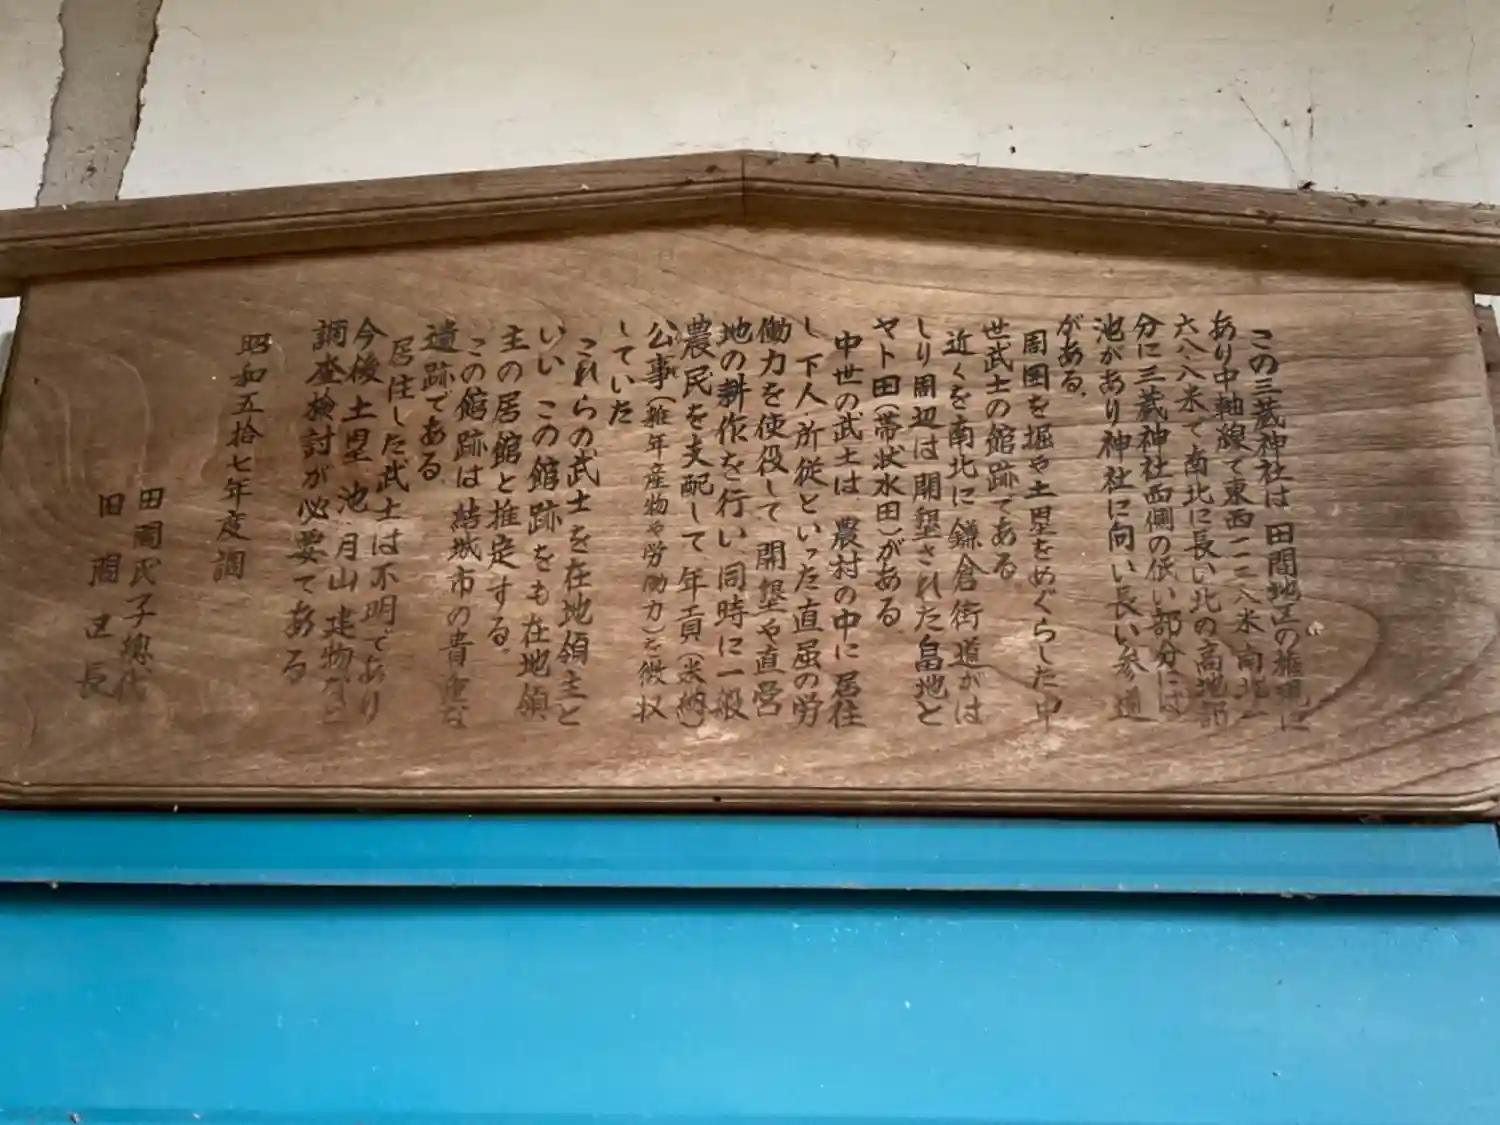 この三蔵神社は 田間地区の権現に
あり中軸線で東西一二八米 南北一
六八八米で南北に長い北の高地部
分に三蔵神社西側の低い部分には
池があり神社に向い長い参道
がある.
周囲を堀や土塁をめぐらした中
世武士の館跡である
近くを南北に鎌倉街道がは
しり周辺は開墾された畠地と
ヤト田(帯状水田)がある
中世の武士は、農村の中に居住
し 下人.所従といった直属の労
働力を使役して、開墾や直営
地の耕作を行い同時に一般
農民を支配して年貢(米納)
公事(雑年産物や労働力)を徴収
していた
これらの武士を在地領主と
いい この館跡をも在地領
主の居館と推定する。
この館跡は 結城市の貴重な
遺跡である.
居住した武士は不明であり
今後土塁 池 月山 建物など
調査検討が必要である
昭和五拾七年度調
田間氏子總代
田間区長